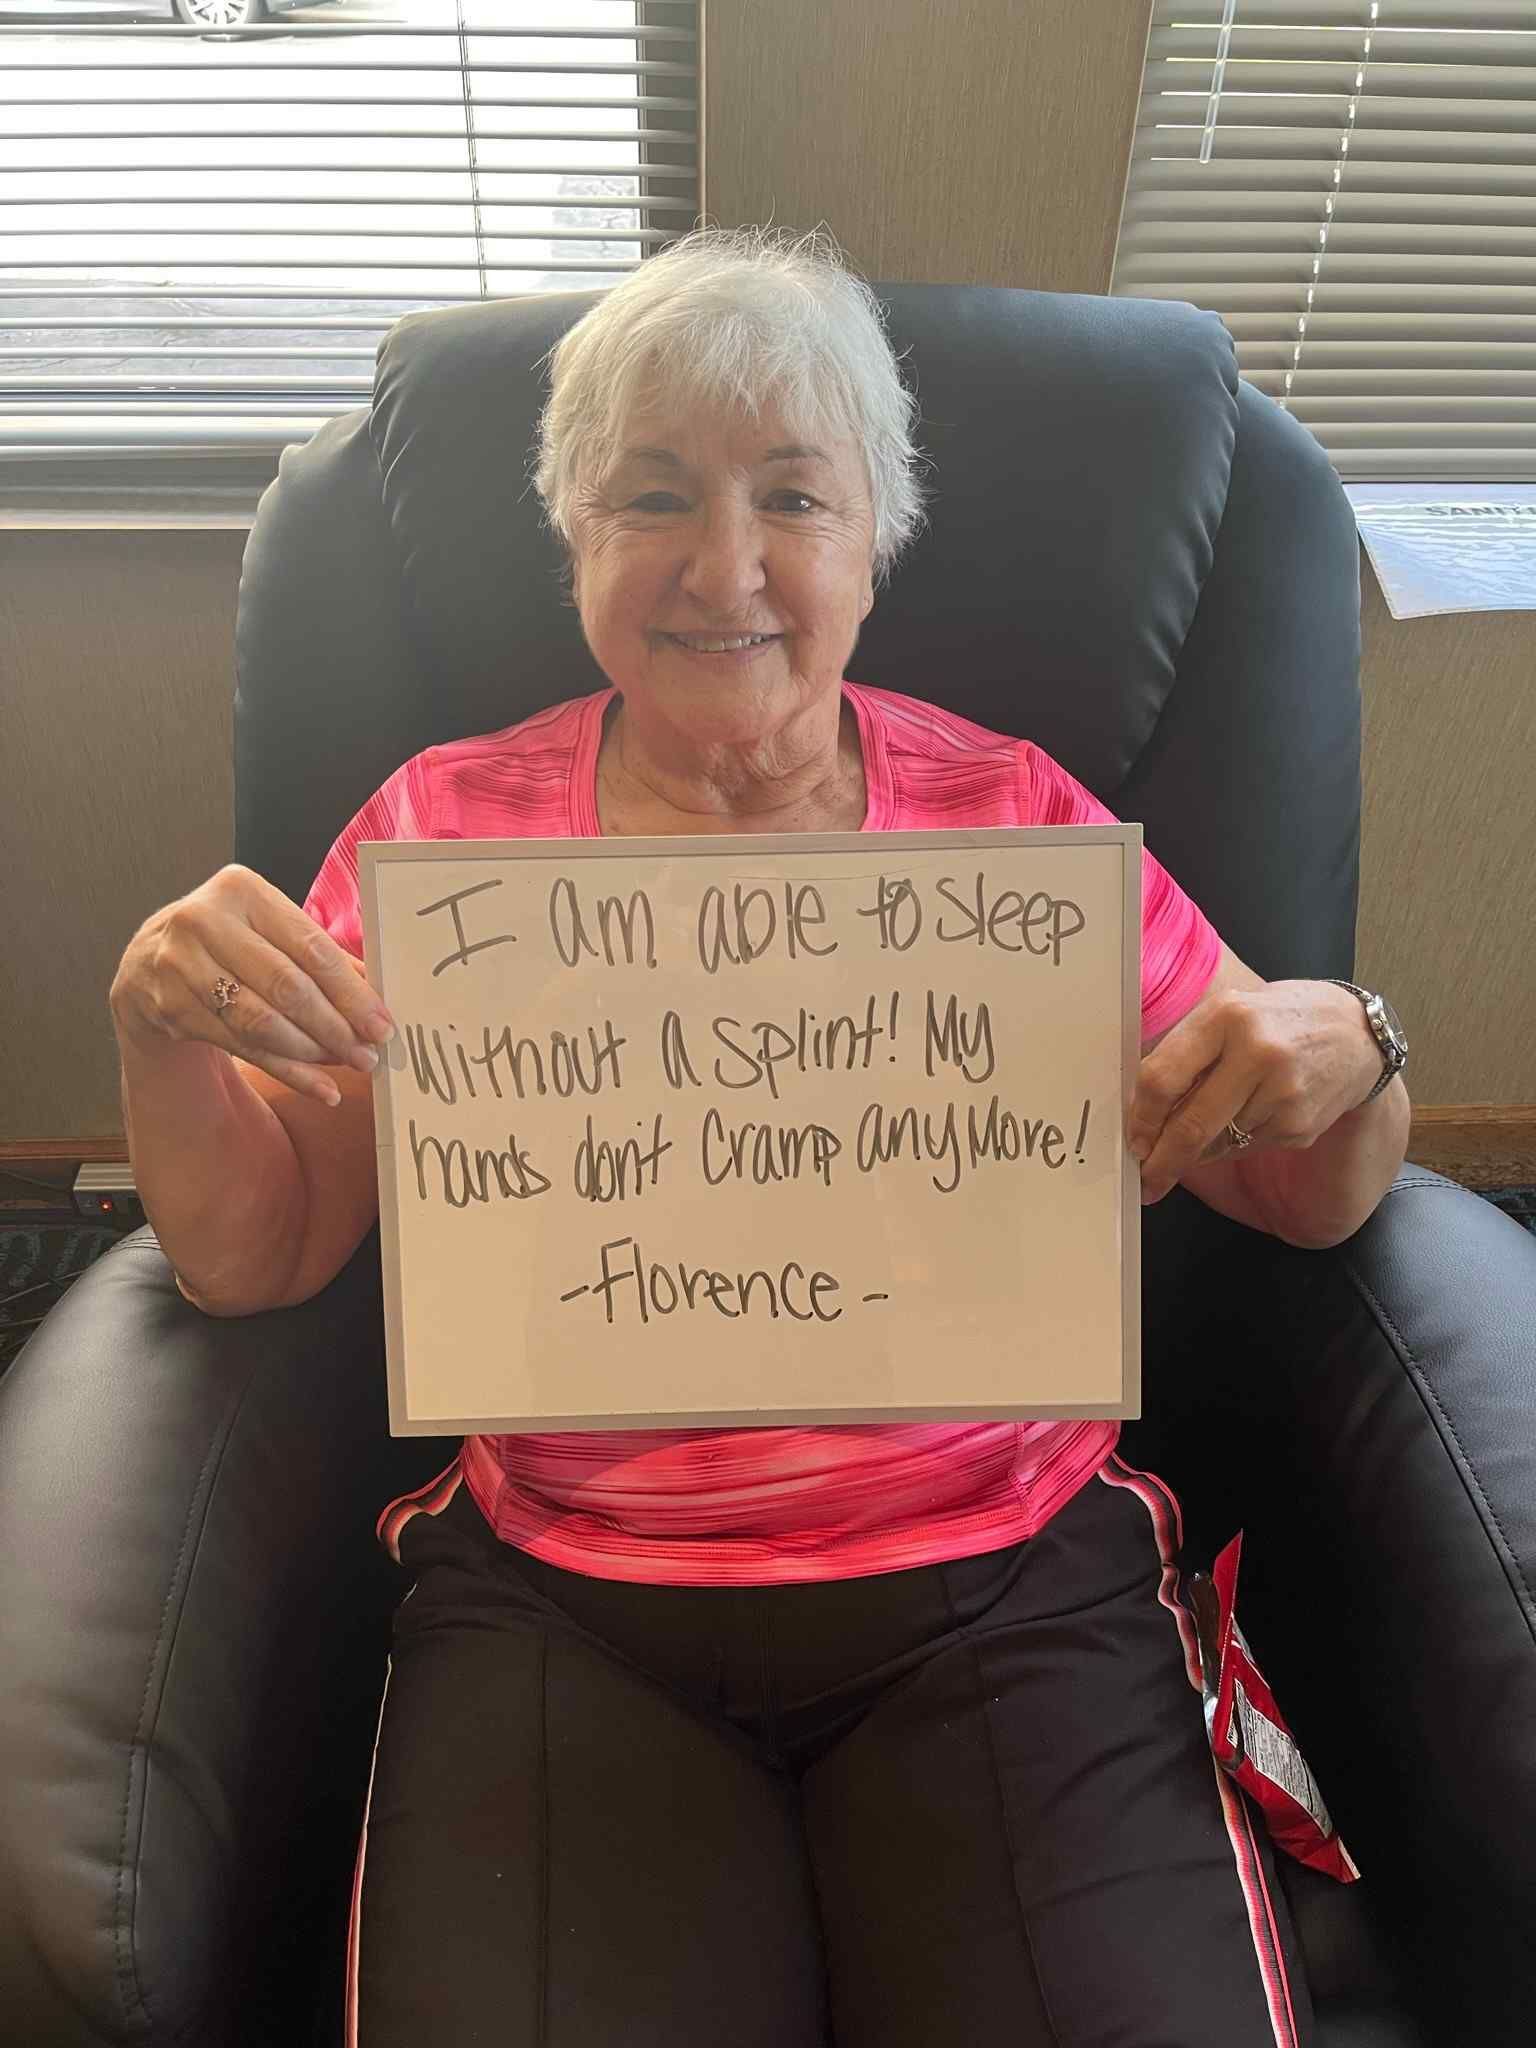 I am able to sleep
without a splint! My
hands don't cramp anymore!
-Florence-
SANI